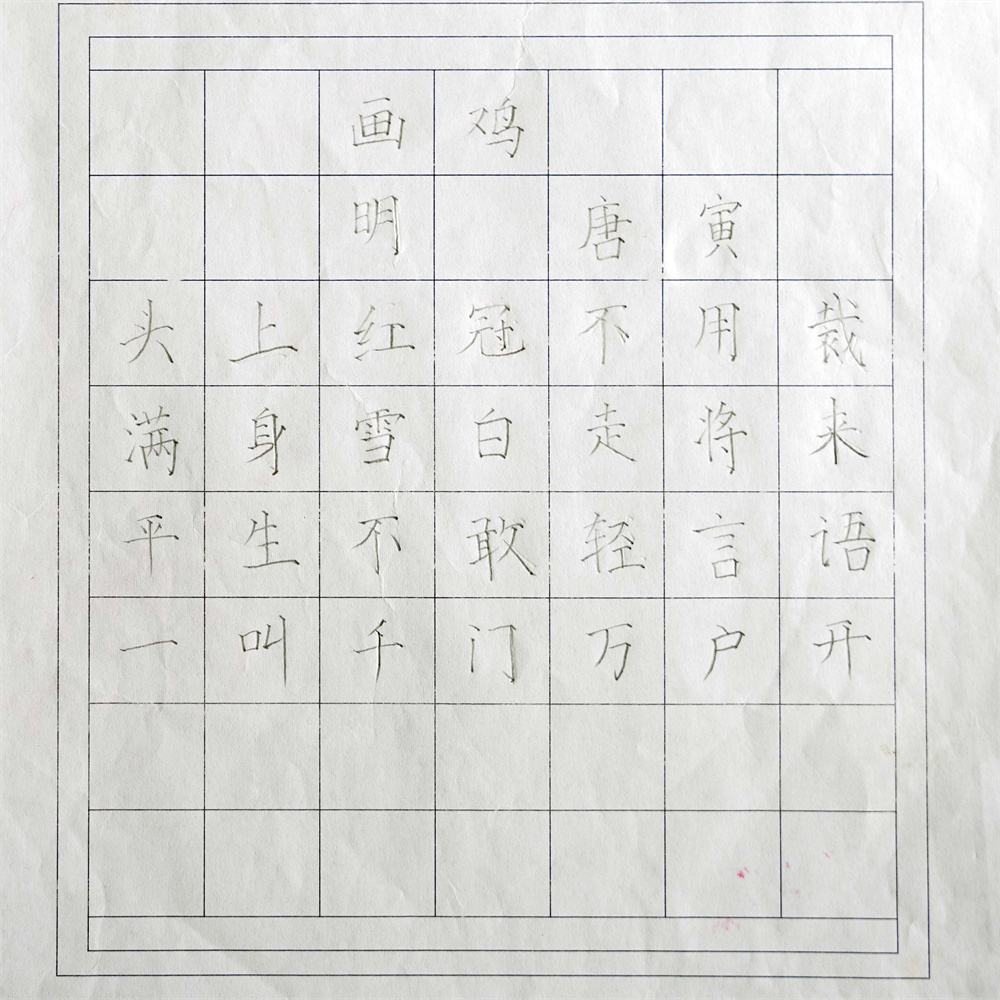 画鸡
明 唐寅
头上红冠不用裁
满身雪白走将来
平生不敢轻言语
一叫千门万户开